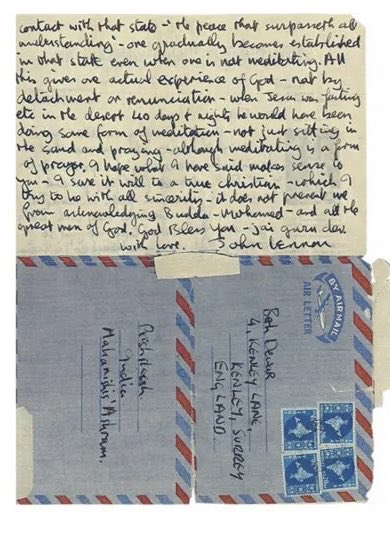 contact with that state - "the peace that surpasseth all
understanding" - one gradually becomes established
in that state even when one is not meditating. All
this gives one actual experience of God - not by
detachment or renunciation - when Jesus was fasting
etc in the desert 40 days & nights he would have been
doing some form of meditation - not just sitting in
the sand and praying - although meditating is a form
of prayer. I hope what I have said makes sense to
you - I sure it will to a true christian - which I
try to be with all sincerity - it does not prevent me
from acknowledging Budda - Mohamed - and all the
great men of God. God Bless You - jai guru dev
with love. John Lennon
BY AIR MAIL
AIR LETTER
Beth Dewer
4, KENLEY LANE,
KENLEY, SURREY
ENGLAND
Rishikesh
India
Maharishi's Ashram,